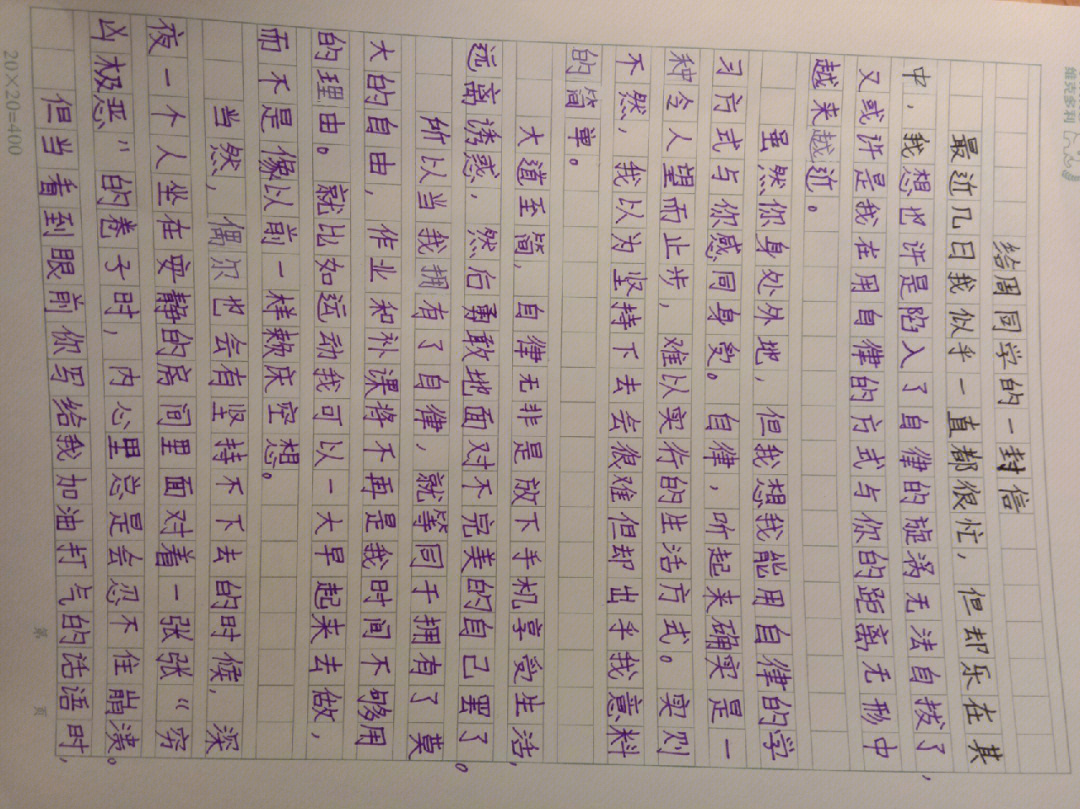 维克多利
给周同学的一封信
最近几日我似乎一直都很忙，但却乐在其
中，我想也许是陷入了自律的旋涡无法自拔了，
又或许是我在用自律的方式与你的距离无形中
越来越近。
虽然你身处外地，但我想我能用自律的学
习方式与你感同身受。自律，听起来确实是一
种令人望而止步，难以实行的生活方式。实则
不然，我以为坚持下去会很难但却出乎我意料
的简单。
大道至简，自律无非是放下手机享受生活，
远离诱惑，然后勇敢地面对不完美的自己罢了。
所以当我拥有了自律，就等同于拥有了莫
大的自由，作业和补课将不再是我时间不够用
的理由。就比如运动我可以一大早起来去做，
而不是像以前一样赖床空想。
当然，偶尔也会有坚持不下去的时候，深
夜一个人坐在安静的房间里面对着一张张“穷
凶极恶”的卷子时，内心里总是会忍不住崩溃。
但当看到眼前你写给我加油打气的话语时，
20×20=400
第 页